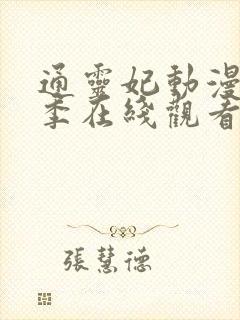 通靈妃動漫
季在綫觀看
張慧德